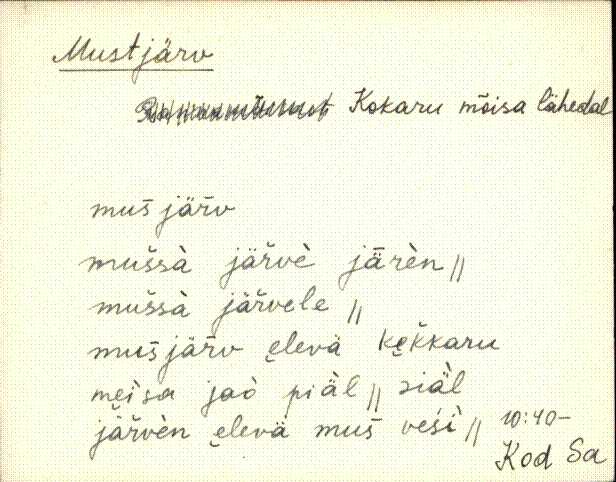 Mustjärv
Kokaru mõisa lähedal
mus̄ jär̄v
mus̆sà jär̆vè jär̀èn //
mus̆sà jär̆vele //
mus̄jär̄v e̮levä ke̮k̆karu
me̮ìsa jaò piäl // siäl
jär̆vèn e̮levä mus̄ veśì //
10:40–
Kod Sa